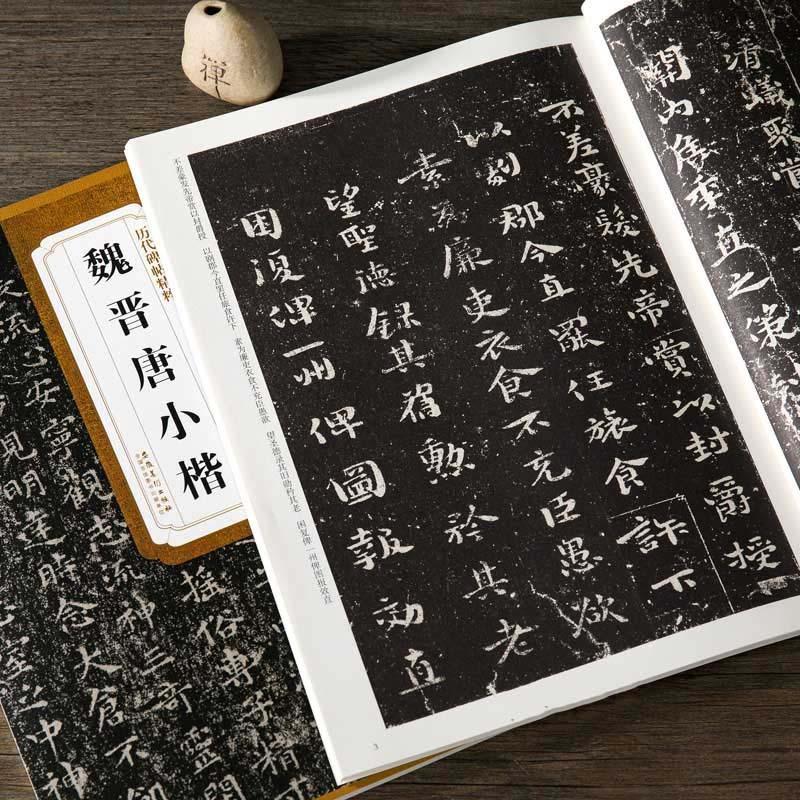 禪
清蟻聚當
關内侯季直之策
不差豪髮先帝賞以封爵授
以劇郡今直罷任旅食許下
素為廉吏衣食不充臣愚欲
望聖德錄其舊勲矜其老
困復俾一州俾圖報効直
不差豪发先帝赏以封爵授 以剧郡今直罢任旅食许下 素为廉吏衣食不充臣愚欲 望圣德录其旧勋矜其老 困复俾一州俾图报效直
3
历代碑帖精粹
魏晋唐小楷
安徽美术出版社
俗專子精
寧觀志流神三奇靈閑
見明達時念大倉不
之中神